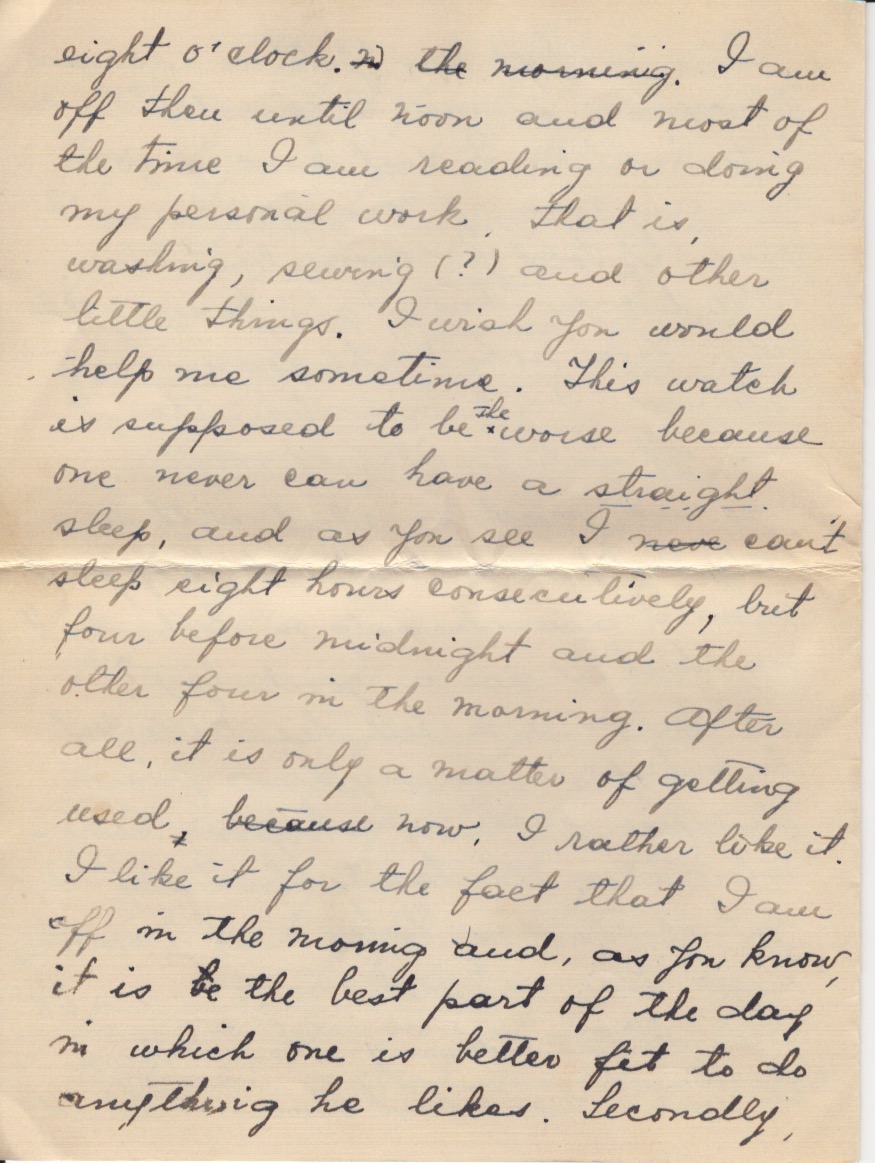 eight o'clock. in the morning. I am
off then until noon and most of
the time I am reading or doing
my personal work, that is,
washing, sewing (?) and other
little things. I wish you would
help me sometime. This watch
is supposed to be the worse because
one never can have a straight
sleep, and as you see I neve can't
sleep eight hours consecutively, but
four before midnight and the
other four in the morning. After
all, it is only a matter of getting
used, because now, I rather like it.
I like it for the fact that I am
off in the moring and, as you know,
it is be the best part of the day
in which one is better fit to do
anything he likes. Secondly,